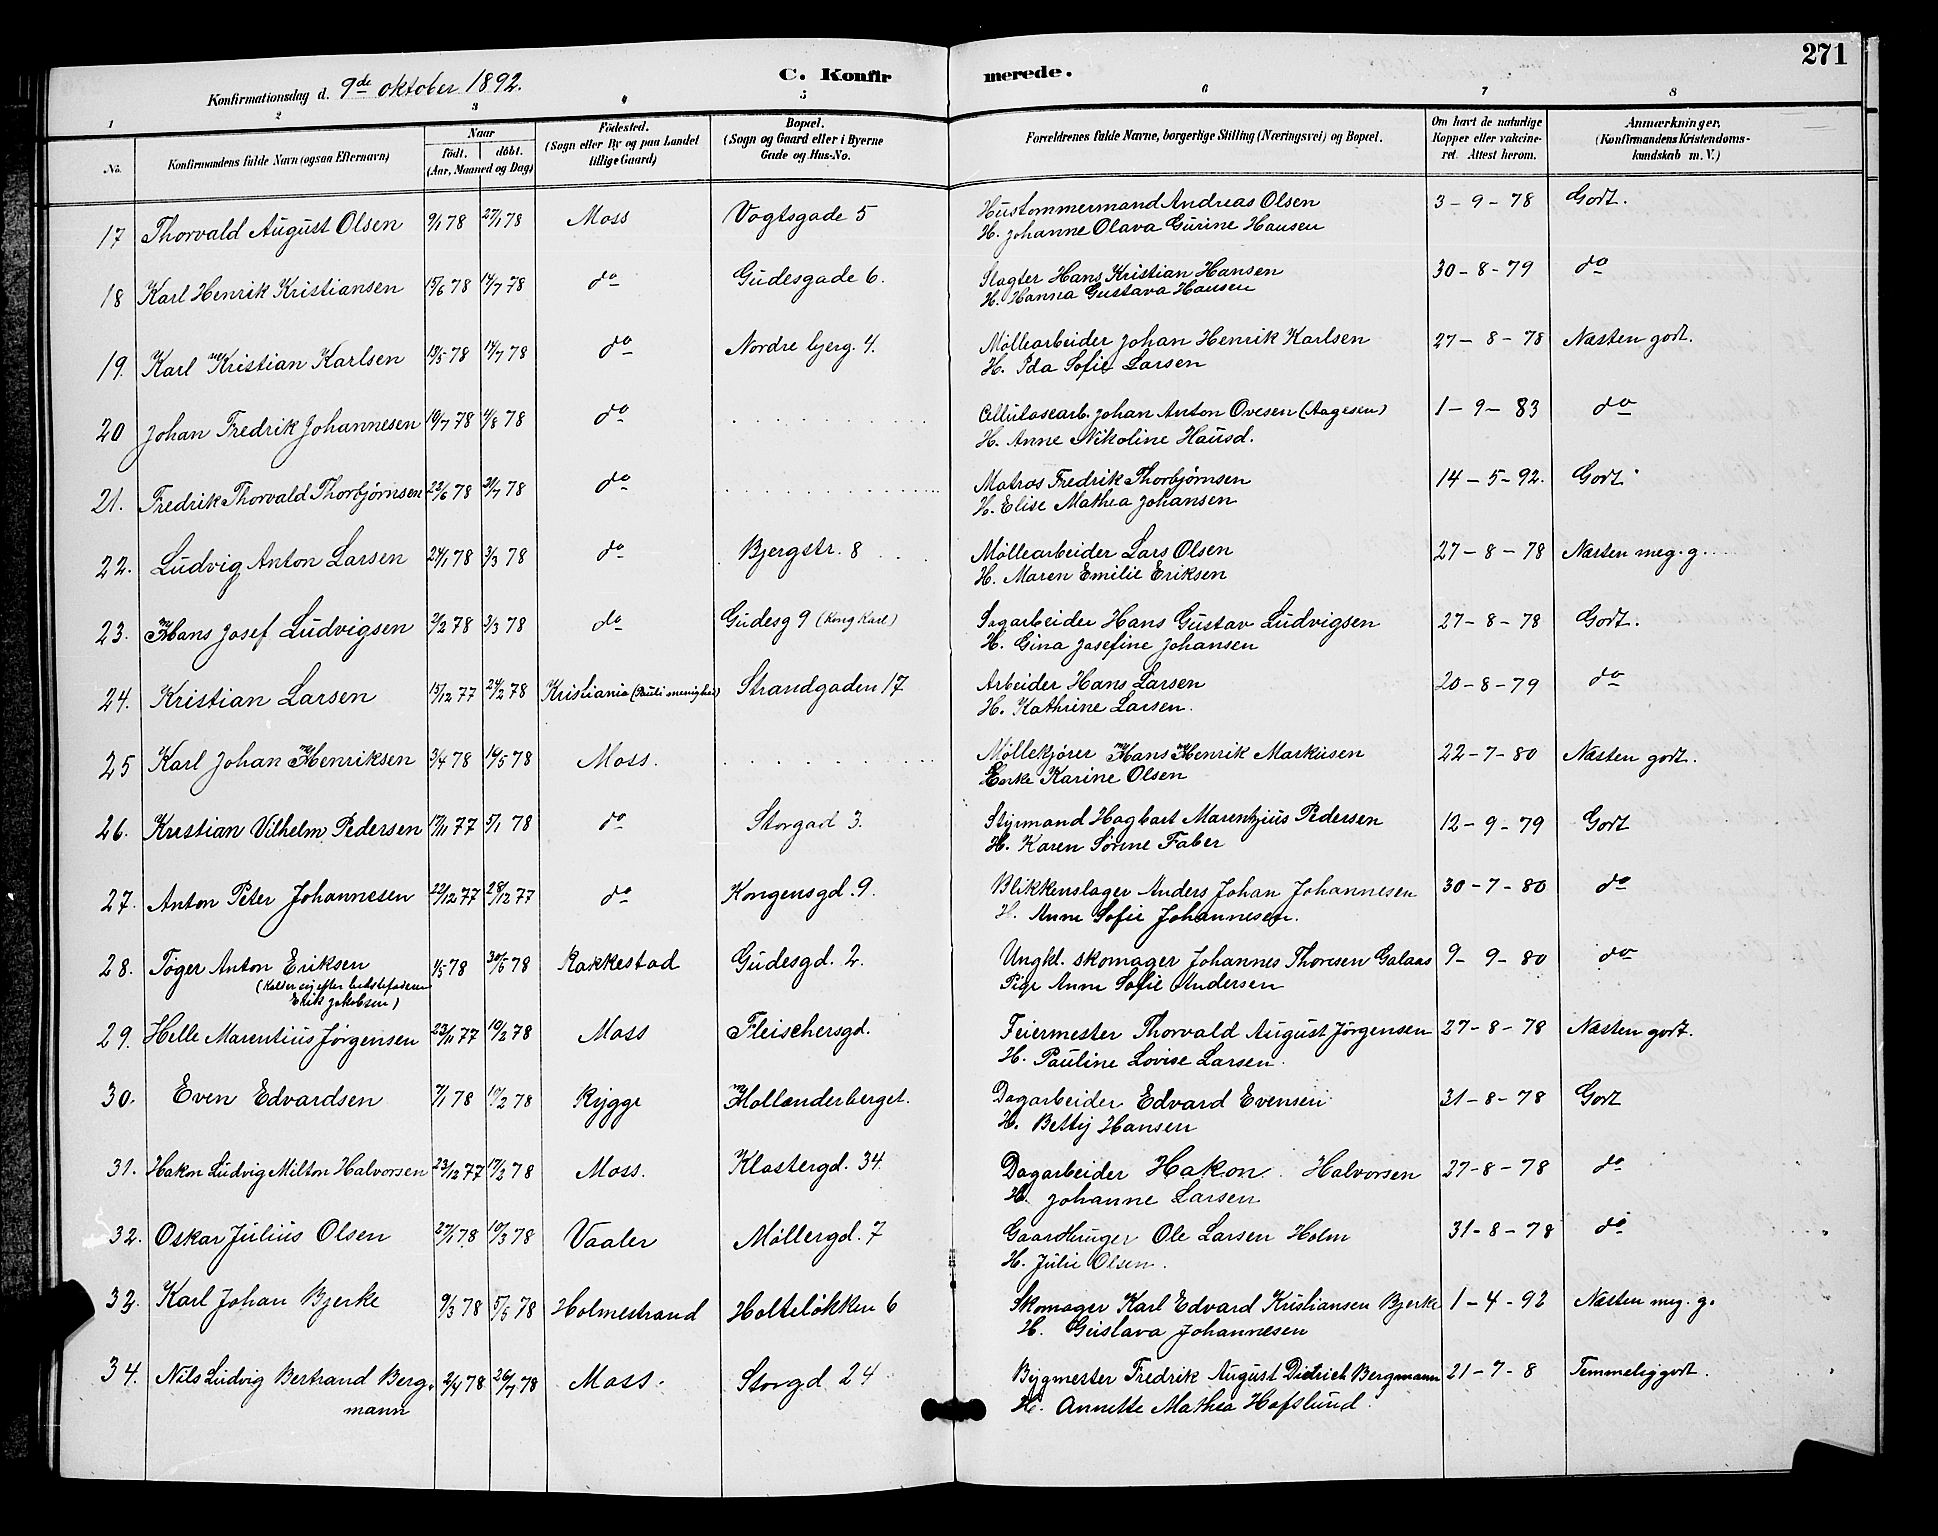 271
Konfirmationsdag d. 9de oktober 1892.
C. Konfirmerede.
1 2 3 4 5 6 7 8
No. Konfirmandens fulde Navn (ogsaa Efternavn) Naar födt. döbt. (Aar, Maaned og Dag) Födested. (Sogn eller By og paa Landet tillige Gaard) Bopæl. (Sogn og Gaard eller i Byerne Gade og Hus-No. Forældrenes fulde Navne, borgerlige Stilling (Næringsvei) og Bopæl. Om havt de naturlige Kopper eller vakcineret. Attest herom. Anmærkninger, (Konfirmandens Kristendomskundskab m. V.)
17 Thorvald August Olsen 9/1 78 27/1 78 Moss Vogtsgade 5 Hustømmermand Andreas Olsen 3-9-78 Godt.
H. Johanne Olava Gurine Hansen
18 Karl Henrik Kristiansen 15/6 78 14/7 78 do Gudesgade 6. Slagter Hans Kristian Hansen 30-8-79 do
H. Hanna Gustava Hansen
19. Karl Kristian Karlsen 19/5 78 14/7 78 do Nordre bjerg. 4. Møllearbeider Johan Henrik Karlsen 27-8-78 Næsten godt.
H. Ida Sofie Larsen
20 Johan Fredrik Johannesen 19/7 78 4/8 78 do Cellulosearb. Johan Anton Ovesen (Aagesen) 1-9-83 do
H. Anne Nikoline Hausd.
21. Fredrik Thorvald Thorbjørnsen 22/6 78 21/7 78 do Matros Fredrik Thorbjørnsen 14-5-92. Godt
H. Elise Mathea Johansen
22. Ludvig Anton Larsen 24/1 78 3/3 78 do Bjergstr. 8 Møllearbeider Lars Olsen 27-8-78 Næsten meg. g.
H. Maren Emilie Eriksen
23. Hans Josef Ludvigsen 2/2 78 3/3 78 do Gudesg 9 (Kong Karl) Sagarbeider Hans Gustav Ludvigsen 27-8-78 Godt.
H. Gina Josefine Johansen
24. Kristian Larsen 15/12 77 24/2 78 Kristiania (Pauli menighed) Strandgaden 17 Arbeider Hans Larsen 20-8-79 do
H. Kathrine Larsen.
25 Karl Johan Henriksen 3/4 78 19/5 78 Moss. Møllekjører Hans Henrik Markusen 22-7-80 Næsten godt.
Enke Karine Olsen
26. Kristian Vilhelm Pedersen 17/11 77 5/1 78 do Storgad 3. Styrmand Hagbart Marentzius Pedersen 12-9-79 Godt
H. Karen Sørine Faber
27. Anton Peter Johannesen 22/12 77 28/12 77 do Kongensgd. 9. Blikkenslager Anders Johan Johannesen 30-7-80 do
H. Anne Sofie Johannesen.
28. Tøger Anton Eriksen 1/5 78 30/5 78 Rakkestad Gudesgd. 2. Ungkl. skomager Johannes Thoresen Galaas 9-9-80 do
(Kalder sig efter bedstefaderen Erik Jakobsen) Pige Anne Sofie Andersen
29. Helle Marentius Jørgensen 23/11 77 10/2 78 Moss Fleischersgd. Feiermester Thorvald August Jørgensen 27-8-78 Næsten godt.
H. Pauline Lovise Larsen
30. Even Edvardsen 7/1 78 17/2 78 Rygge Hollenderberget. Dagarbeider Edvard Evensen 31-8-78 Godt
H. Betty Hansen
31. Hakon Ludvig Milton Halvorsen 23/12 77 17/3 78 Moss. Klostergd. 34. Dagarbeider Hakon Halvorsen 27-8-78 do
H. Johanne Larsen
32. Oskar Julius Olsen 27/1 78 10/3 78 Vaaler Møllergd. 7 Gaardbruger Ole Larsen Holm 31-8-78 do
H. Julie Olsen.
33. Karl Johan Bjerke 9/3 78 5/5 78 Holmestrand Holteløkken 6 Skomager Karl Edvard Kristiansen Bjerke 1-4-92 Næsten meg. g.
H. Gustava Johannesen
34. Nils Ludvig Bertrand Bergmann 2/4 78 26/7 78 Moss. Storgd 24 Bygmester Fredrik August Dietrich Bergmann 21-7-8 Temmelig godt.
H. Annette Mathea Hafslund